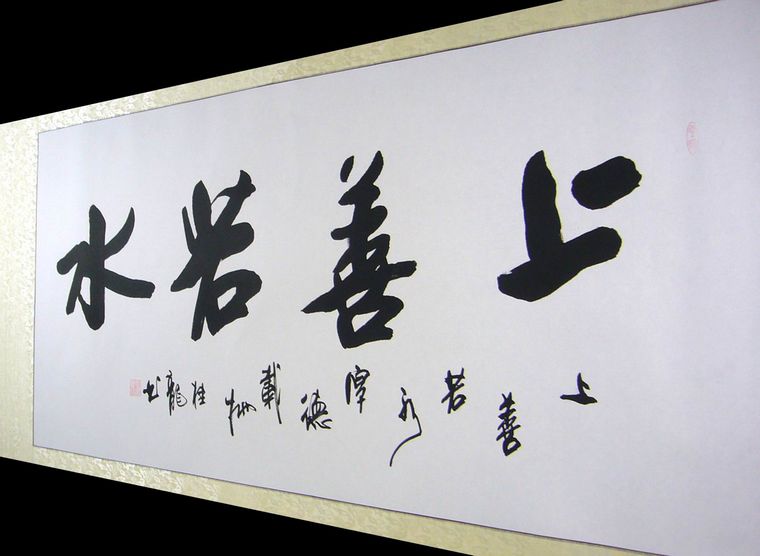 上善若水
上善若水厚德載物 桂龍书